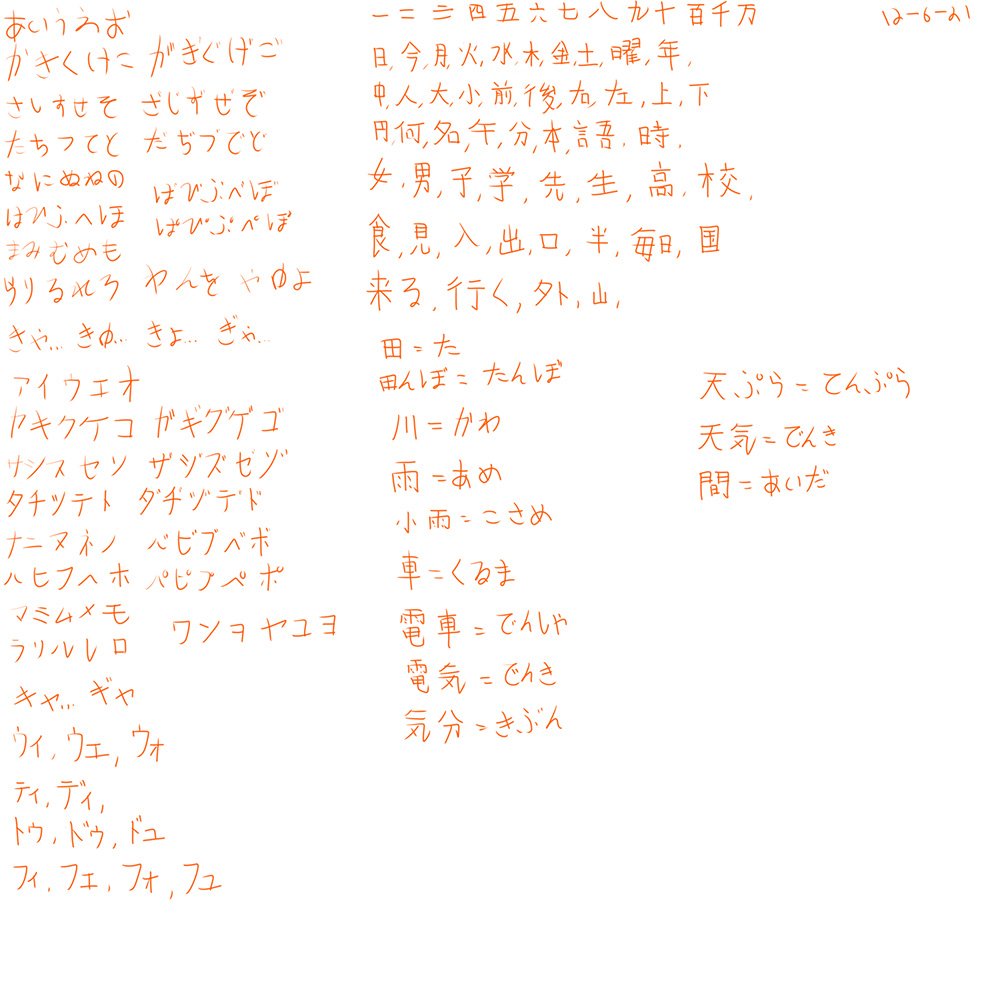 あいうえお
かきくけこ がぎぐげご
さしすせそ ざじずぜぞ
たちつてと だぢづでど
なにぬねの
はひふへほ ばびぶべぼ
ぱぴぷぺぽ
まみむめも
らりるれろ わんを やゆよ
きゃ... きゅ... きょ... ぎゃ...
アイウエオ
カキクケコ ガギグゲゴ
サシスセソ ザジズゼゾ
タチツテト ダヂヅデド
ナニヌネノ バビブベボ
ハヒフヘホ パピプペポ
マミムメモ
ラリルレロ ワンヲ ヤユヨ
キャ... ギャ
ウィ, ウェ, ウォ
ティ, ディ,
トゥ, ドゥ, デュ
フィ, フェ, フォ, フュ
一二三四五六七八九十百千万
日,今,月,火,水,木,金,土,曜,年,
中,人,大,小,前,後,右,左,上,下
円,何,名,午,分,本,語,時,
女,男,子,学,先,生,高,校,
食,見,入,出,口,半,毎日,国
来る,行く,外,山,
田=た
田んぼ=たんぼ
川=かわ
雨=あめ
小雨=こさめ
車=くるま
電車=でんしゃ
電気=でんき
気分=きぶん
12-6-21
天ぷら=てんぷら
天気=でんき
間=あいだ